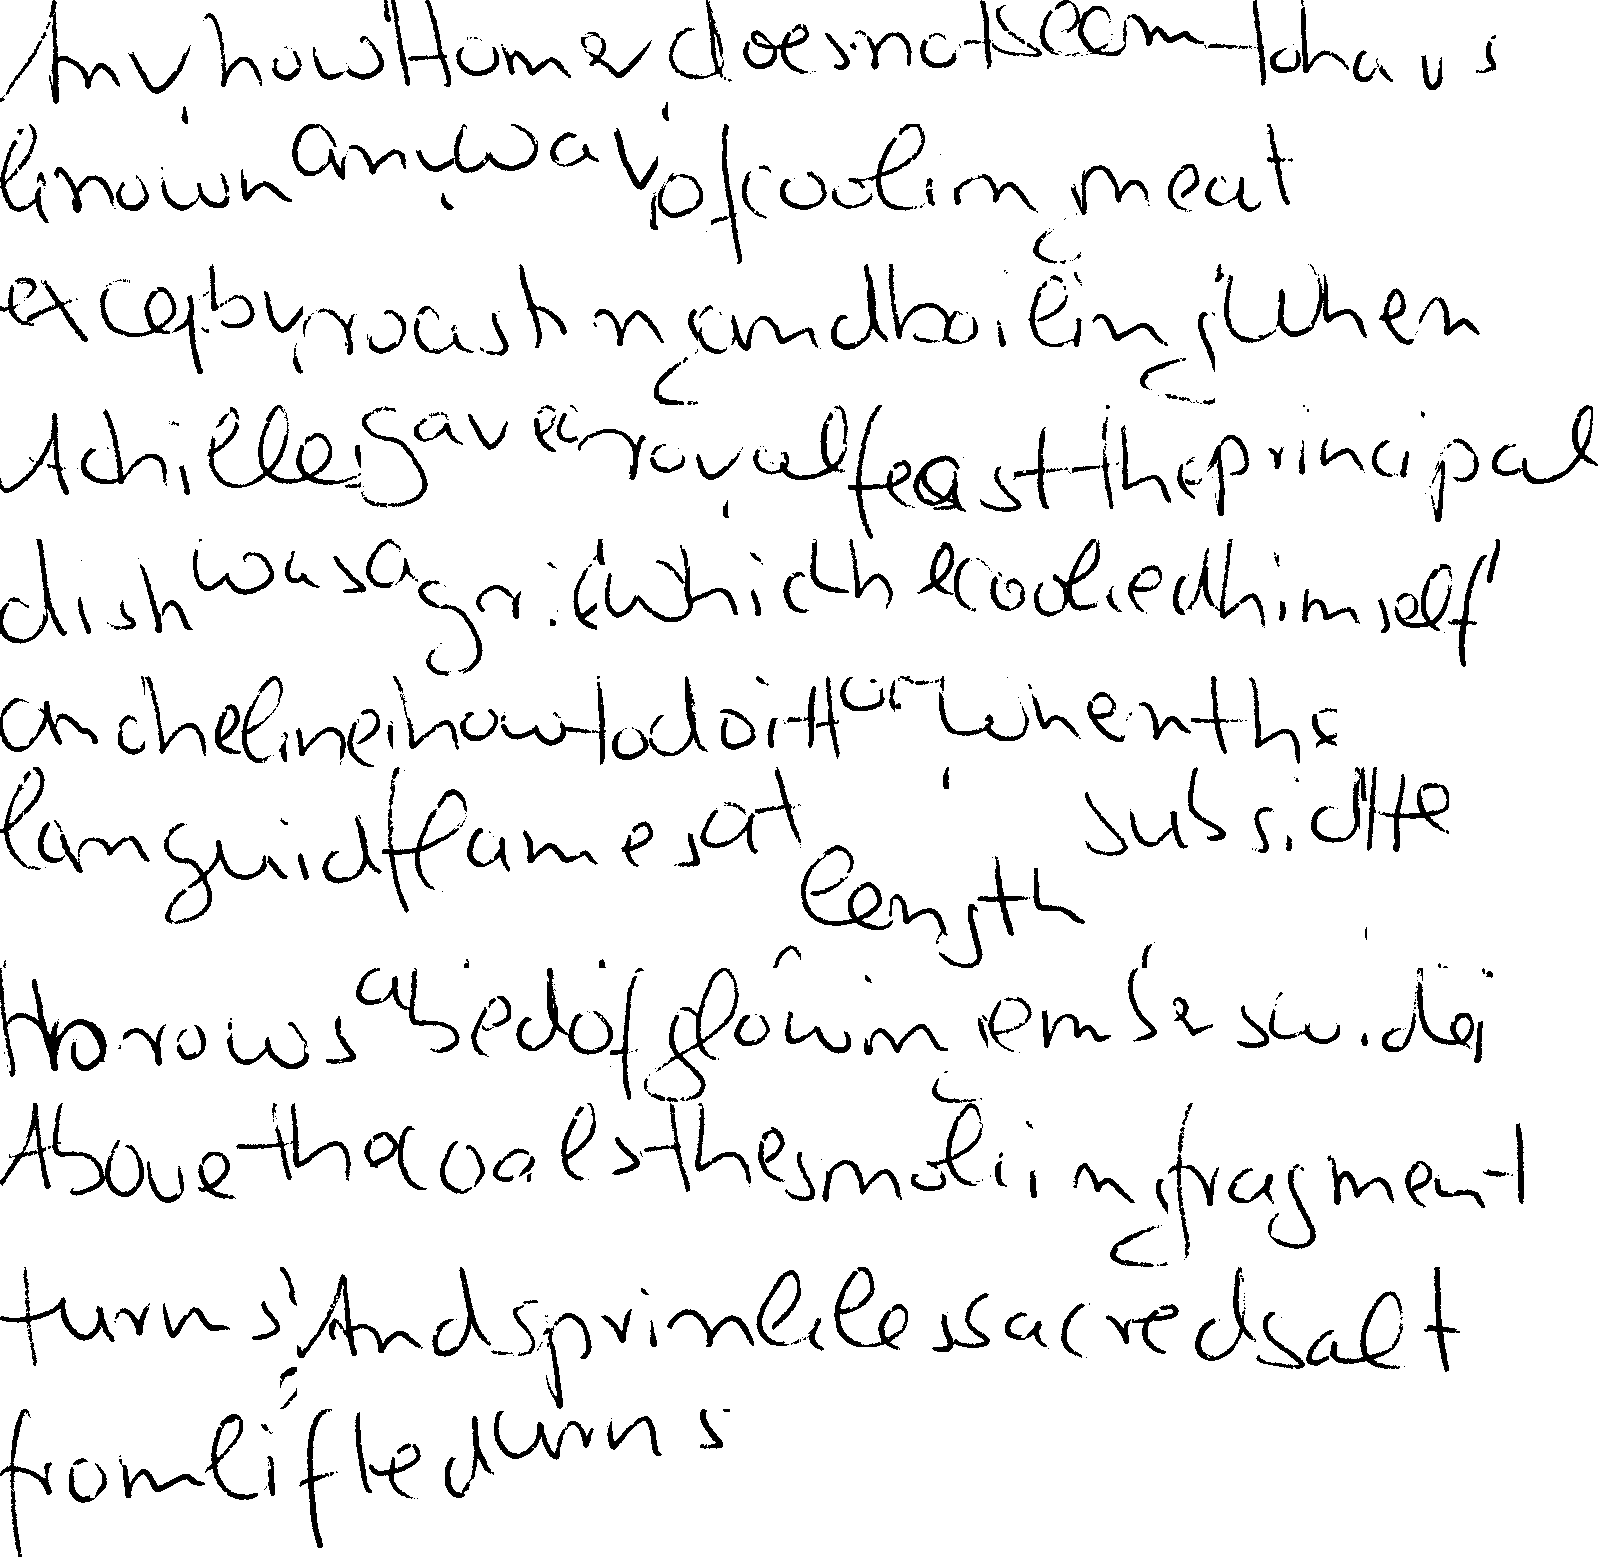 Anyhow Homer does not seem to have
known any way of cooking meat
except by roasting and boiling. When
Achilles gave a royal feast the principal
dish was a grill which he cooked himself
and he knew how to do it too When the
languid flames at length subside He
throws a bed of glowing embers wide
Above the coals the smoking fragment
turns And sprinkles sacred salt
from lifted urns